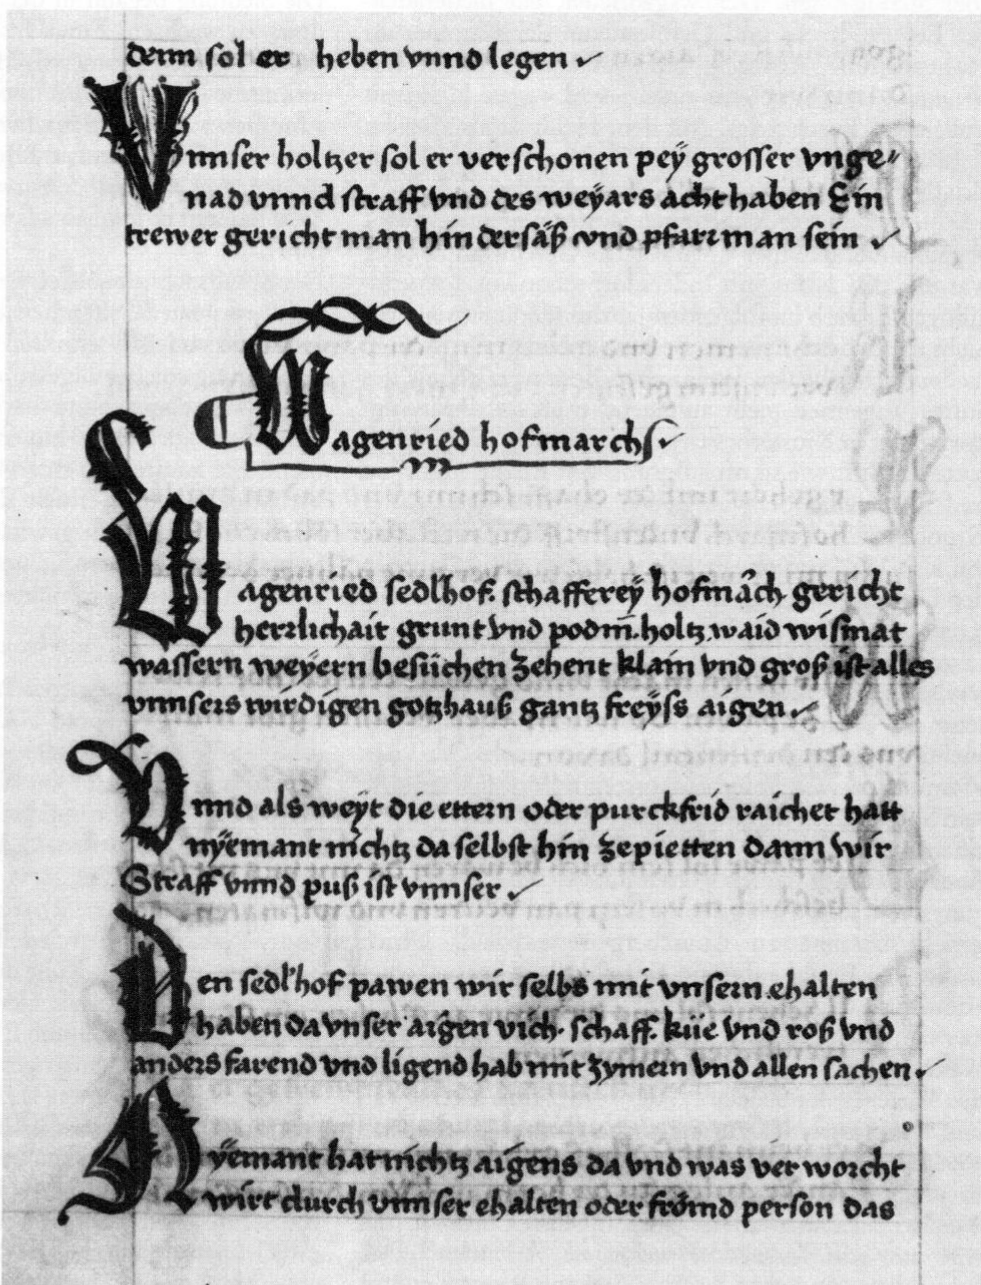 denn sol er heben vnnd legen
Vnnser holtzer sol er verschonen peÿ grosser vnge〃
nad vnnd straff vnd des weÿars acht haben Ein
trewer gericht man hindersäß vnd pfarrman sein
Wagenried hofmarchs
Wagenried sedlhof. schaffereÿ hofmåch gericht
herrlichait grunt vnd podm̄. holtz waid wismat
wassern weÿern besüchen Zehent klain vnd groß ist alles
vnnsers wirdigen gotzhauß gantz freÿs aigen
Vnnd als weÿt die ettern oder purckfrid raichet hatt
nÿemant nichtz daselbst hin zepietten dann wir
Straff vnnd puß ist vnnser
Den sedlhof pawen wir selbs mit vnsern ehalten
haben da vnser aigen vich. schaff. küe vnd roß vnd
anders farend vnd ligend hab mit zymern vnd allen sachen
Nÿemant hat nichtz aigens da vnd was verworcht
wirt durch vnnser ehalten oder frömd person das